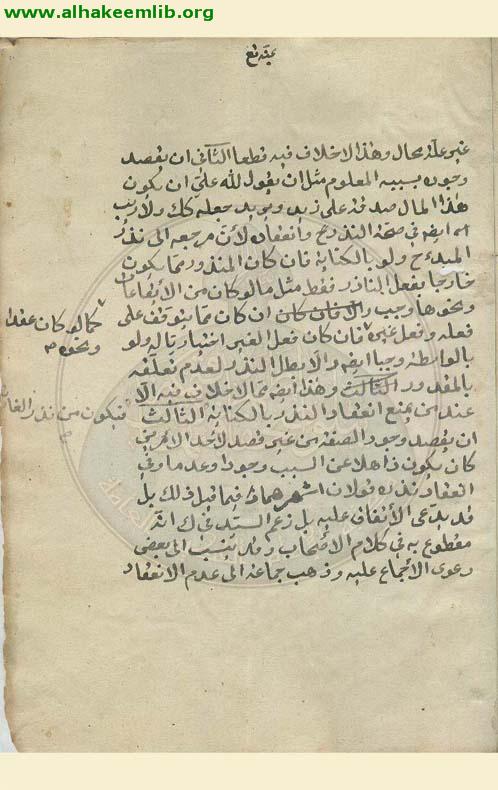 www.alhakeemlib.org
غير علة بحال وهذا لا خلاف فيه قطعا الثاني ان يقصد
وجوده بسببه المعلوم مثل ان يقول لله علي ان يكون
هذا المال صدقة على زيد ويريد جعله كك ولا ريب
ايضا في صحة النذر ح وانعقاده لأن مرجعه الى نذر
المبدء ح ولو بالكناية فان كان المنذور مما يكون
خارجا بفعل الناذر فقط مثل ما لو كان من الأيقاعات
ونحوها وجب والا فان كان ان كان مما يتوقف على
فعله وفعل غيره فان كان فعل الغير اختياريا له ولو
كما لو كان عقدا
ونحوه صح
بالواسطة وجبا ايضا والا بطل النذر لعدم تعلقه
بالمقدور الثالث وهذا ايضا مما لا خلاف فيه الا
فيكون من نذر
عند من يمنع انعقاد النذر بالكناية الثالث
ان يقصد وجود الصفة من غير قصد لأحد الامرين
كان يكون ذاهلا عن السبب وجودا وعدما وفي
انعقاد نذره قولان اشهرهما فيما قيل ذلك بل
قد يدعى الأتفاق عليه بل زعم السيد في ك انه
مقطوع به في كلام الاصحاب وقد ينسب الى بعض
دعوى الأجماع عليه وذهب جماعة الى عدم الانعقاد